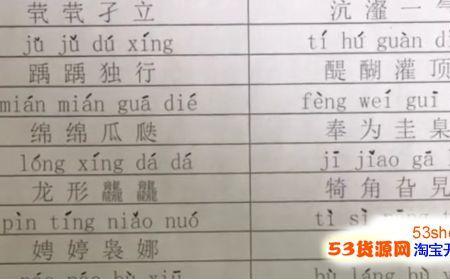 茕茕孑立 沆瀣一气
jǔ jǔ dú xíng tí hú guàn d
踽踽独行 醍醐灌顶
mián mián guā dié fèng weí guī
绵绵瓜瓞 奉为圭臬
lóng xíng dá dá jī jiao gā l
龙形龘龘 犄角旮旯
pìn tíng niǎo nuó tì sì
娉婷袅娜
53she
53货源网 淘宝开